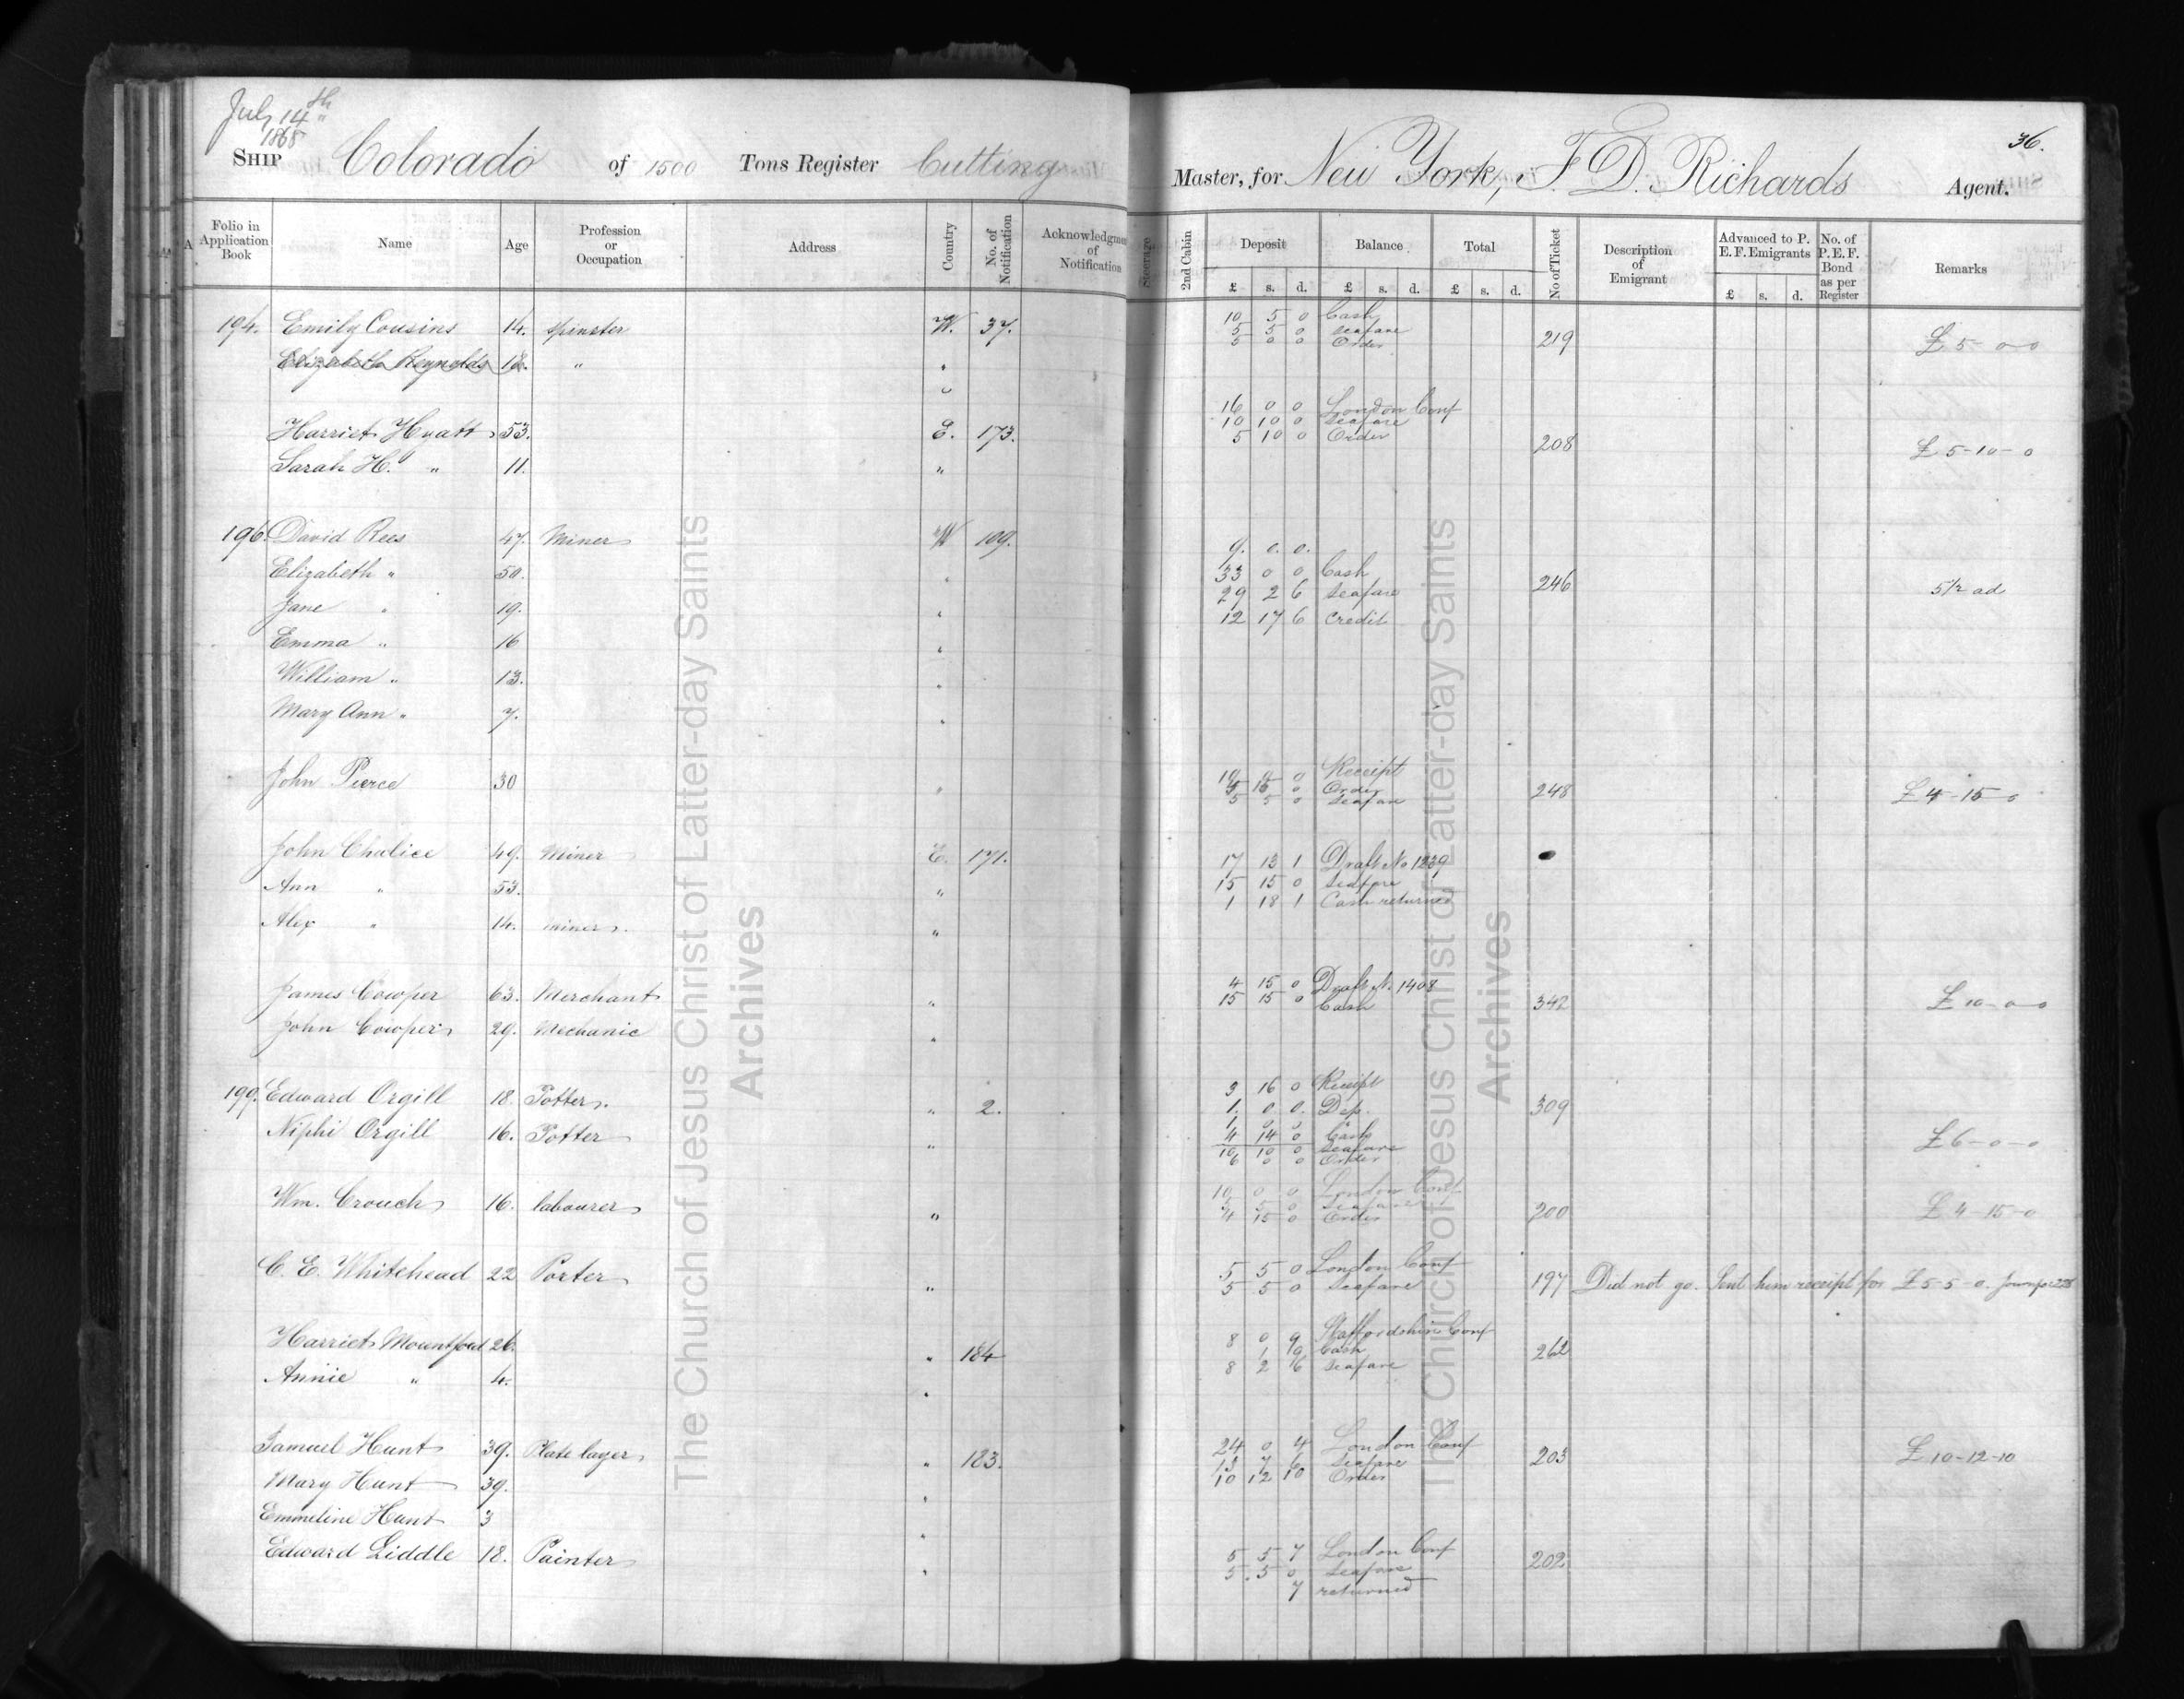 July 14th
1868
SHIP Colorado of 1500 Tons Register Cutting Master, for New York, F. D. Richards Agent.
36.
Folio in Application Book | Name | Age | Profession or Occupation | Address | Country | No. of Notification | Acknowledgm of Notification | Steerage | 2nd Cabin | Deposit £ s. d. | Balance £ s. d. | Total £ s. d. | No of Ticket | Description of Emigrant | Advanced to P. E. F. Emigrants £ s. d. | No. of P. E. F. Bond as per Register | Remarks
194. Emily Cousins 14. Spinster W. 37. 10 5 0 Cash
5 5 0 Seafare 219 £5-0-0
5 0 0 Order
Elizabeth Reynolds 18. "
16 0 0 London Conf
10 10 0 Seafare
Harriet Hyatt 53. E. 173. 5 10 0 Order 208 £5-10-0
Sarah H. " 11. "
196. David Rees 47. Miner W 109. 9. 0. 0.
Elizabeth " 50. " 33 0 0 Cash 246 5 1/2 ad
Jane " 19. " 29 2 6 Seafare
12 17 6 Credit
Emma " 16 "
William " 13. "
Mary Ann " 7. "
John Pierce 30 " 10 0 0 Receipt
15 0 Order 248 £4-15-0
5 5 0 Seafare
John Chalice 49. Miner E. 171. 17 13 1 Draft No 1239
Ann " 53. " 15 15 0 Seafare
1 18 1 Cash returned
Alex " 14. miner. "
James Cowper 63. Merchant " 4 15 0 Draft No. 1408
15 15 0 Cash 342 £10-0-0
John Cowper 29. Mechanic "
199. Edward Orgill 18. Potter. " 2. 3 16 0 Receipt
1. 0. 0. Dep. 309
1 0 0
Niphi Orgill 16. Potter " 4 14 0 Cash £6-0-0
10 10 0 Seafare
6 0 0 Order
Wm. Crouch 16. labourer " 10 0 0 London Conf
5 5 0 Seafare 200 £4-15-0
4 15 0 Order
C. E. Whitehead 22 Porter " 5 5 0 London Conf
5 5 0 Seafare 197 Did not go. Sent him receipt for £5-5-0.
Harriet Mountford 26. " 184 8 0 9 Staffordshire Conf
1 9 Cash 262
Annie " 4. " 8 2 6 Seafare
Samuel Hunt 39. Plate layer " 183. 24 0 4 London Conf
13 7 6 Seafare 203 £10-12-10
Mary Hunt 39. " 10 12 10 Order
Emmeline Hunt 3 "
Edward Liddle 18. Painter " 5 5 7 London Conf 202
5 5 0 Seafare
7 returned
The Church of Jesus Christ of Latter-day Saints
Archives
The Church of Jesus Christ of Latter-day Saints
Archives